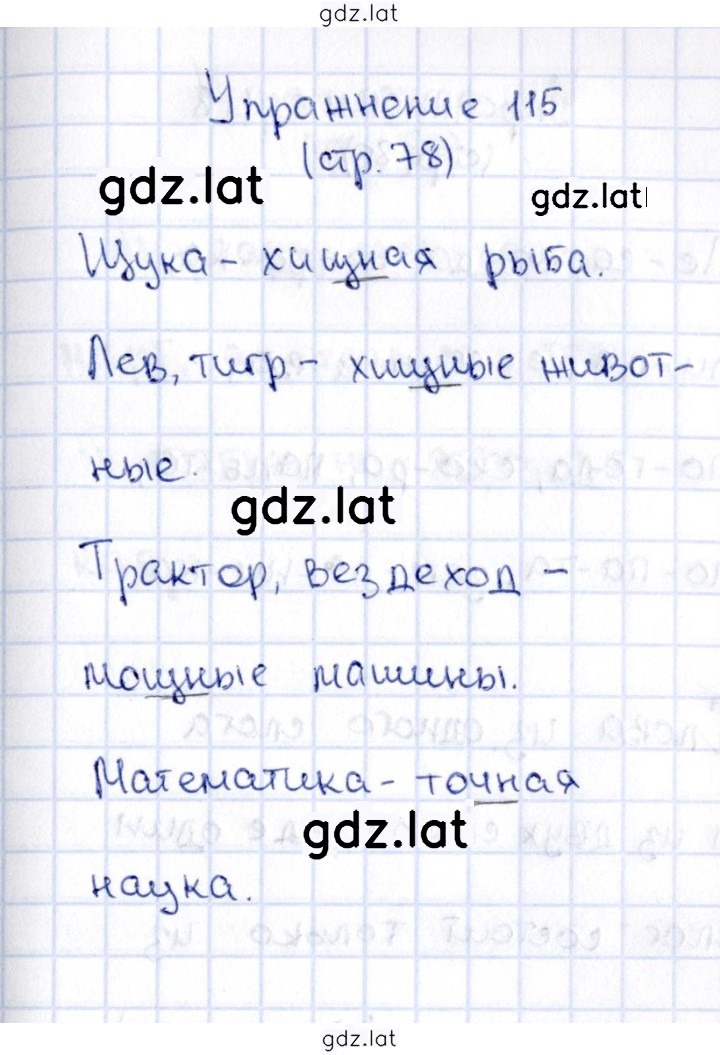 gdz.lat
Упражнение 115
(стр. 78)
gdz.lat
gdz.lat
Щука - хищная рыба.
Лев, тигр - хищные живот-
ные.
gdz.lat
Трактор, вездеход -
мощные машины.
Математика - точная
gdz.lat
наука.
gdz.lat